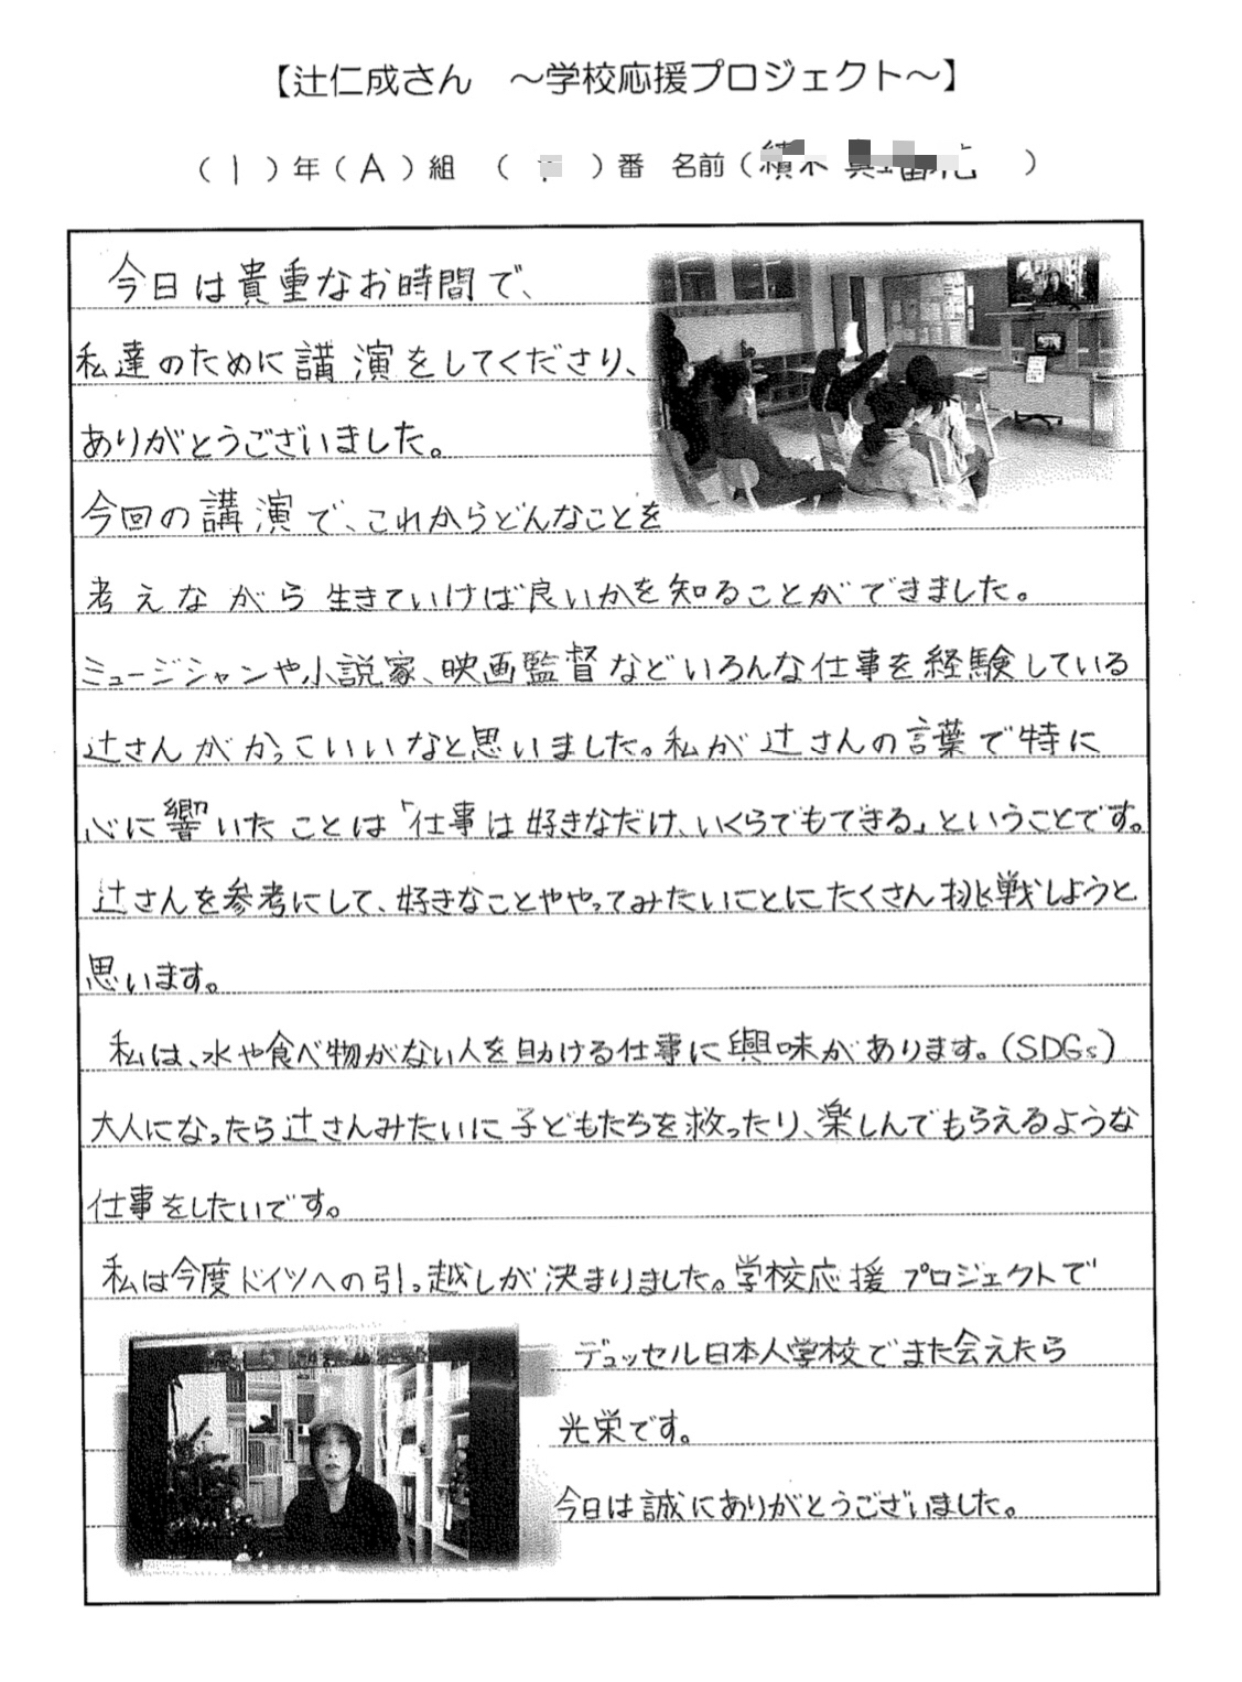 【辻仁成さん　～学校応援プロジェクト～】
（１）年（A）組　（　）番　名前（　）
今日は貴重なお時間で、
私達のために講演をしてくださり、
ありがとうございました。
今回の講演で、これからどんなことを
考えながら生きていけば良いかを知ることができました。
ミュージシャンや小説家、映画監督などいろんな仕事を経験している
辻さんがかっこいいなと思いました。私が辻さんの言葉で特に
心に響いたことは「仕事は好きなだけ、いくらでもできる」ということです。
辻さんを参考にして、好きなことややってみたいことにたくさん挑戦しようと
思います。
私は、水や食べ物がない人を助ける仕事に興味があります。(SDGs)
大人になったら辻さんみたいに子どもたちを救ったり、楽しんでもらえるような
仕事をしたいです。
私は今度ドイツへの引っ越しが決まりました。学校応援プロジェクトで
デュッセル日本人学校でまた会えたら
光栄です。
今日は誠にありがとうございました。